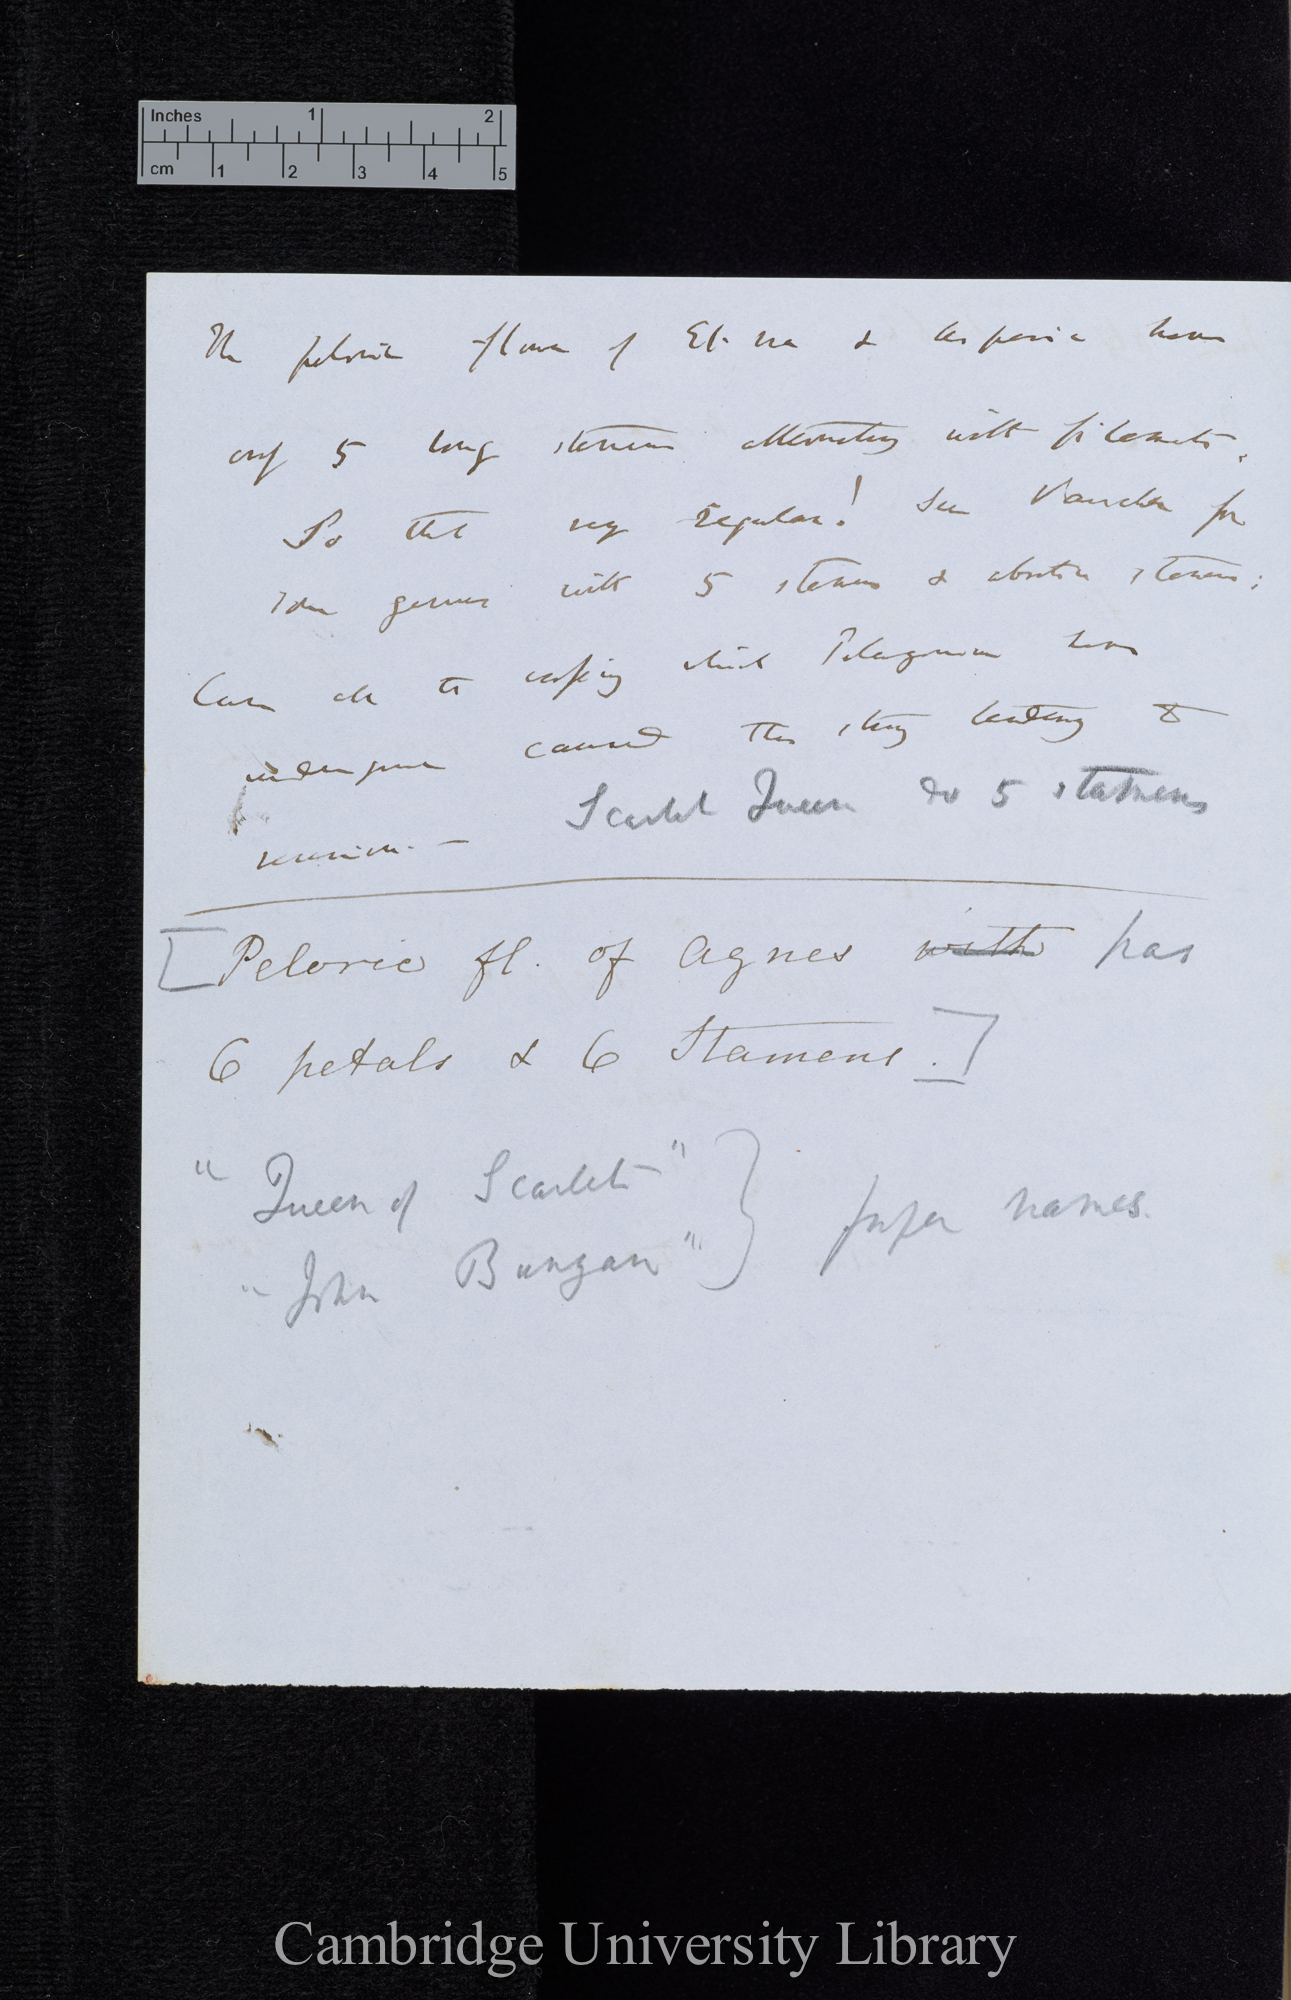 Inches 1 2
cm 1 2 3 4 5
The peloric flower of Etna & Aspasia have
only 5 long stamens alternating with filaments,
So that very regular! See Vaucher for
some genus with 5 stamens & abortive stamens;
Can all the which Pelargonium have
undergone caused this strong tendency to
reversion. —
Scarlet Queen do 5 stamens
[Peloric fl. of Agnes with has
6 petals & 6 Stamens.]
"Queen of Scarlets"
"John Bunyan" } proper names.
Cambridge University Library